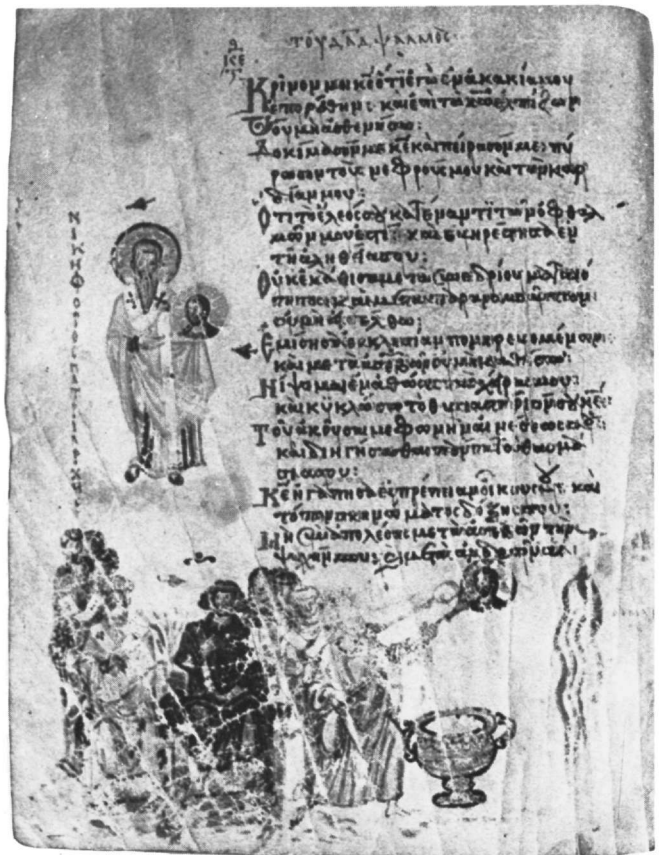 τοῦ δᾱδ ψαλμός
ΚΕ
Κρίνον με κ̅ε̅ ὅτι ἐγὼ ἐν ἀκακία μου
ἐπορεύθην· καὶ ἐπὶ τῶ κ̅ω̅ ἐλπίζων
οὐ μὴ ἀσθενήσω:
Δοκίμασόν με κ̅ε̅ καὶ πείρασόν με· πύ
ρωσον τοὺς νεφρούς μου καὶ τὴν καρ
δίαν μου:
Ὅτι τὸ ἔλεός σου κατέναντι τῶν ὀφθαλ
μῶν μου ἐστί: καὶ εὐηρέστησα ἐν
τῆ ἀληθεία σου:
Οὐκ ἐκάθισα μετὰ συνεδρίου ματαιό
τητος· καὶ μετὰ παρανομούντων
οὐ μὴ εἰσέλθω:
Ἐμίσησα ἐκκλησίαν πονηρευομένων·
καὶ μετὰ ἀσεβῶν οὐ μὴ καθήσω:
Νίψομαι ἐν ἀθώοις τὰς χεῖράς μου:
καὶ κυκλώσω τὸ θυσιαστήριόν σου κ̅ε̅:
Τοῦ ἀκοῦσαί με φωνῆς αἰνέσεως
καὶ διηγήσασθαι πάντα τὰ θαυμά
σιά σου:
Κ̅ε̅ ἠγάπησα εὐπρέπειαν οἴκου σου· καὶ
τόπον σκηνώματος δόξης σου:
Μὴ συναπολέσης μετὰ ἀσεβῶν τὴν
ψυχήν μου:
ΝΙΚΗΦΟΡΟΣ ΠΑΤΡΙΑΡΧΗΣ